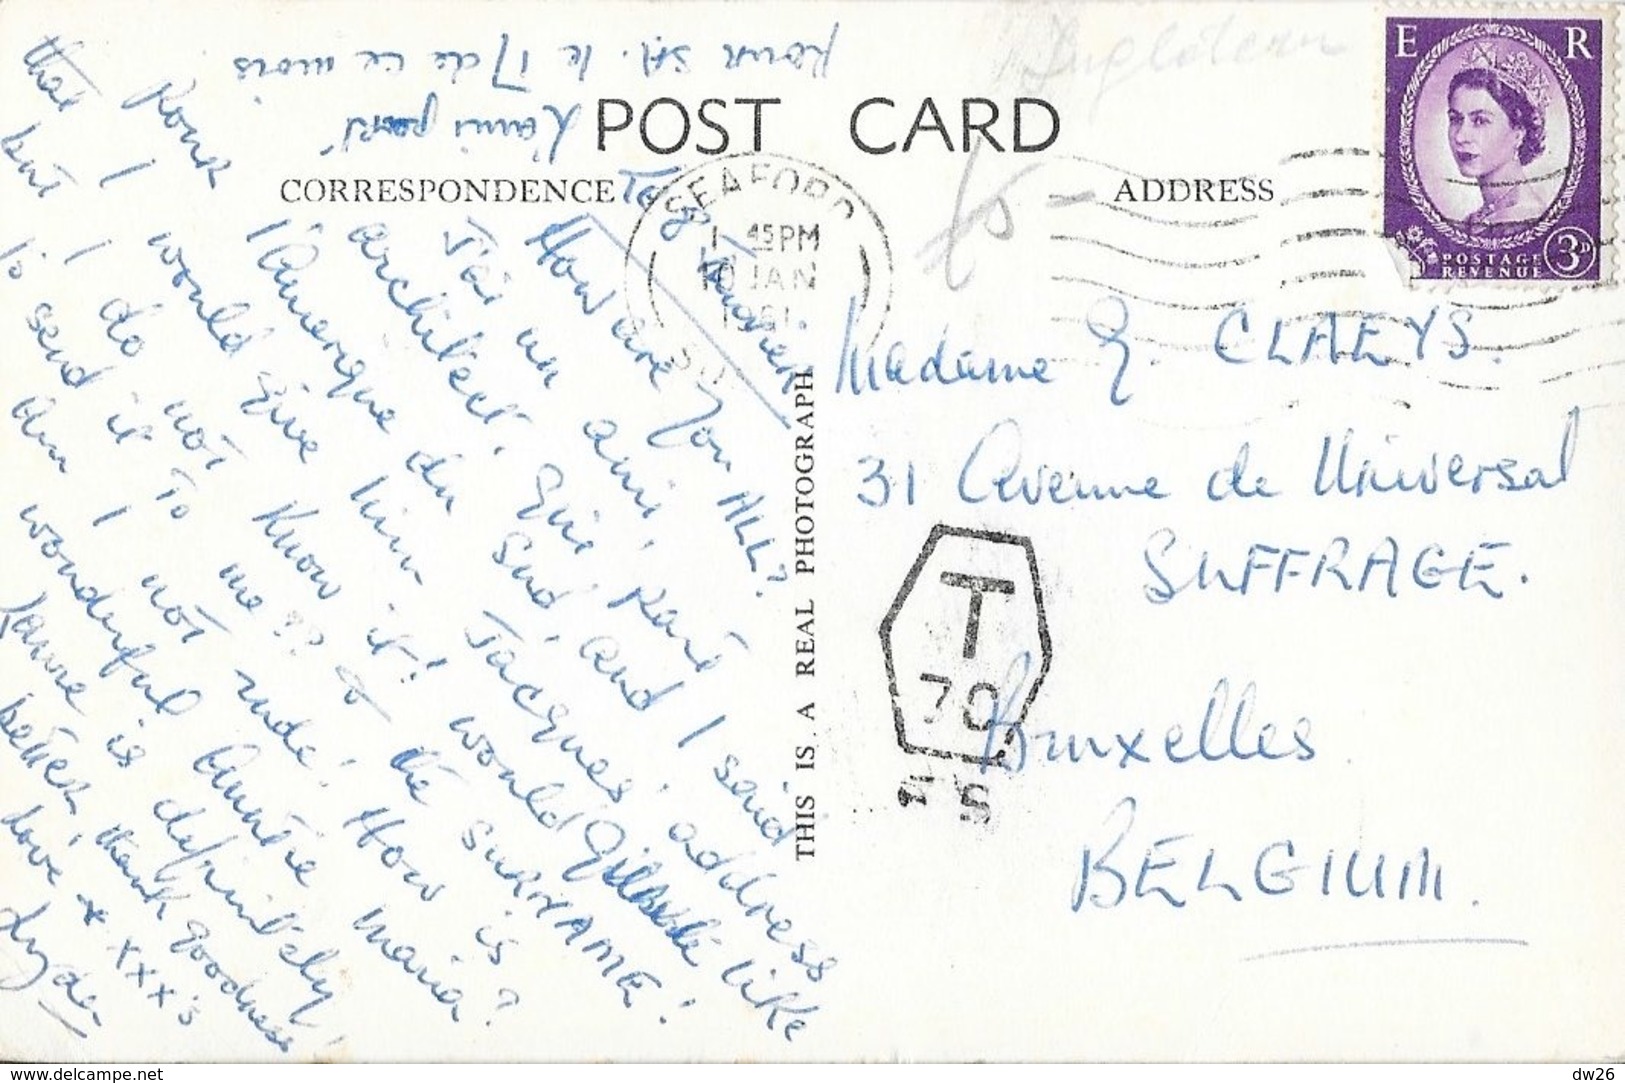 E R
3D
POSTAGE
REVENUE
POST CARD
CORRESPONDENCE
ADDRESS
SEAFORD
1 45PM
10 JAN
1961
THIS IS A REAL PHOTOGRAPH
How are you ALL?
J'ai un ami, qui part
architect,
pour l'Amérique du Sud, and I said
that I would give him Jacques' address
but I do not know it! would Gilberte like
to send it to me?? & the SURNAME!
Am I not rude! How is
wonderful Auntie Maria?
is definitely
better, thank goodness!
love x xxx's
l'ami part
pour S.A. le 17 de ce mois
Madame G. CLAEYS.
31 Avenue de Universal
SUFFRAGE.
T
70
S
Bruxelles
BELGIUM.
www.delcampe.net
dw26